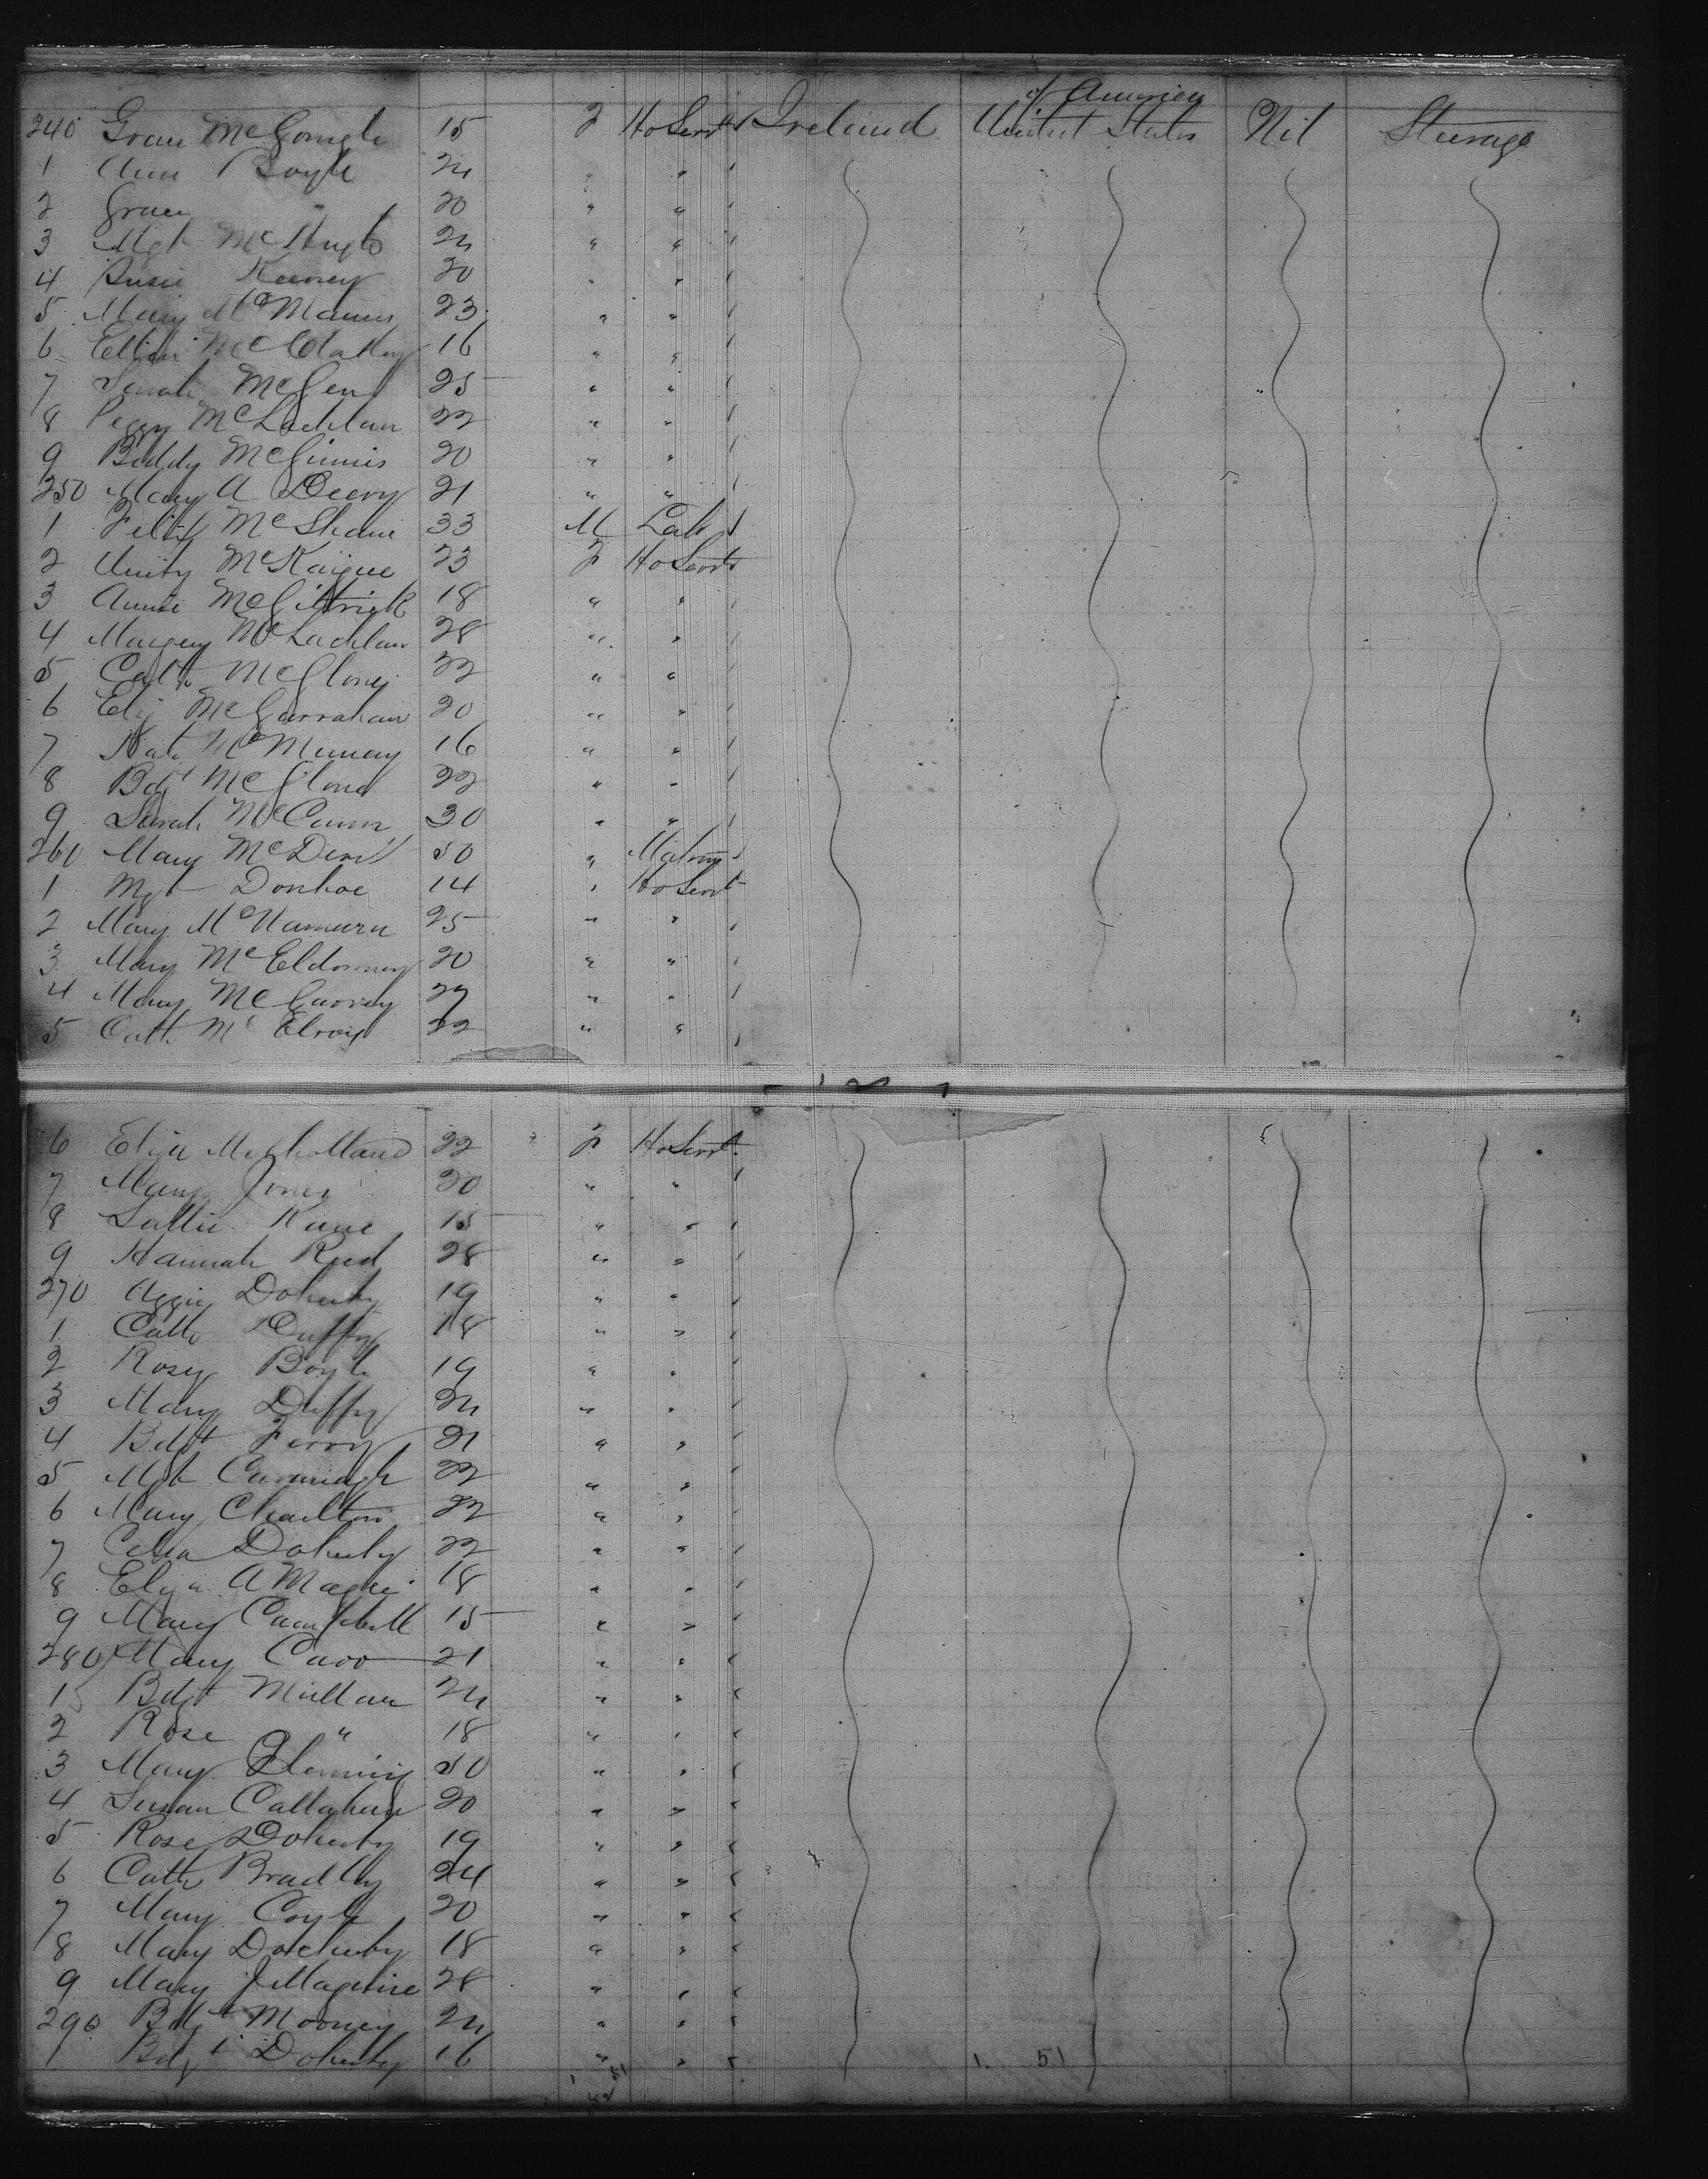 of America
240 Grace McGonigle 15 F Ho Servt Ireland United States Nil Steerage
1 Ann Boyle 24 " " "
2 Grace " 20 " "
3 Mgt McHugh 24 " "
4 Susie Keeney 20 " "
5 Mary McManus 23 " "
6 Ellen 16 " "
7 Sarah 25 " "
8 Peggy McLachlan 22 " "
9 Biddy McGinnis 20 " "
250 Mary A Deery 21 " "
1 McShane 33 M Lab
2 Unity McKaigue 23 F Ho Servt
3 Annie McGitrick 18 " "
4 Margery McLachlan 28 " "
5 Cath McGlone 22 " "
6 Eliz McGarrahan 20 " "
7 Kate 16 " "
8 Bdgt McGlone 22 " "
9 Sarah McCann 30 " "
260 Mary 50 " Matron
1 Mgt Donhoe 14 " Ho Servt
2 Mary McNamara 25 " "
3 Mary McEldowney 20 " "
4 Mary McGarvey 27 " "
5 Cath McElroy 22 " "
6 Eliza Mulholland 22 F Ho Servt
7 Mary Jones 30 " "
8 Sallie Kane 15 " "
9 Hannah Reed 28 " "
270 Aggie Doherty 19 " "
1 Cath Duffy 18 " "
2 Rosey Boyle 19 " "
3 Mary Duffy 24 " "
4 Bdgt Ferry 21 " "
5 Mgt Cavanagh 22 " "
6 Mary Charlton 22 " "
7 Celia Doherty 22 " "
8 Eliza A Magee 18 " "
9 Mary Campbell 15 " "
280 Mary Carr 21 " "
1 Bdgt Mullan 24 " "
2 Rose " 18 " "
3 Mary Fleming 50 " "
4 Susan Callahan 20 " "
5 Rose Doherty 19 " "
6 Cath Bradley 24 " "
7 Mary Coyle 20 " "
8 Mary Docherty 18 " "
9 Mary J Maguire 28 " "
290 Bdgt Mooney 24 " "
1 Bdgt Doherty 16 " "
1. 51